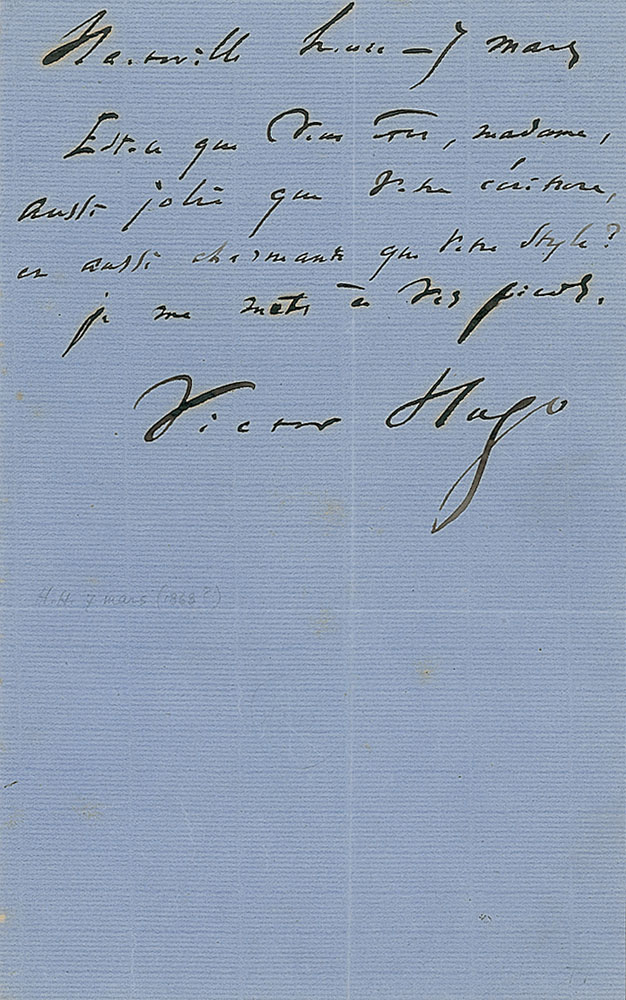 Hauteville house – 7 mars
Est-ce que vous êtes, madame,
aussi jolie que votre écriture,
et aussi charmante que votre style?
je me mets à vos pieds.
Victor Hugo
H.H. 7 mars (1868?)